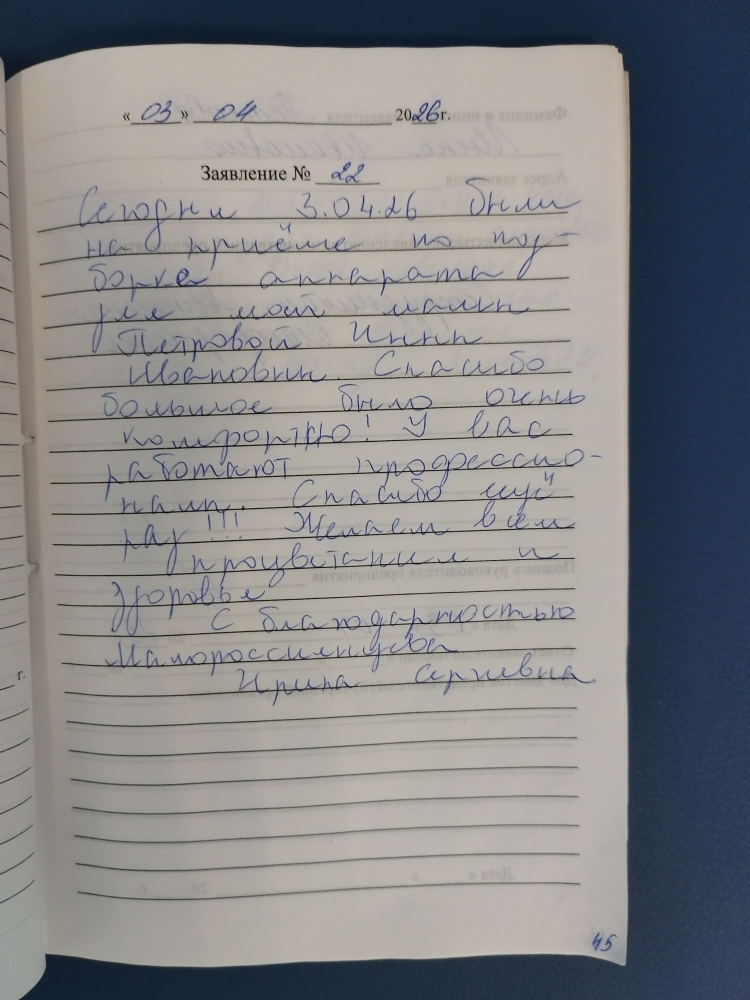 « 03 » 04 2026 г.
Заявление № 22
Сегодня 3.04.26 были
на приёме по под-
борке аппарата
для моей мамы
Петровой Инны
Ивановны. Спасибо
большое было очень
комфортно! У вас
работают профессио-
налы. Спасибо ещё
раз!!! Желаем всем
процветания и
здоровье
С благодарностью
Малороссиянцева
Ирина Сергеевна
45